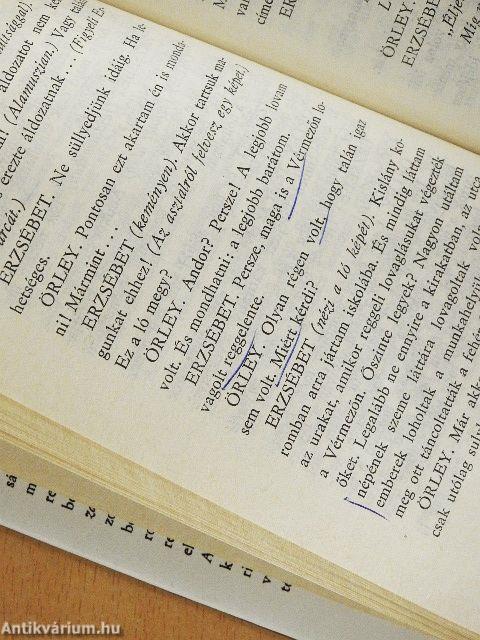 áldozatot nem
n! (Alamuszian.) Vagy
erezte áldozatnak... (Figyeli
arcát.)
ERZSÉBET. Ne süllyedjünk idáig. Ha k-
hetséges.
ÖRLEY. Pontosan ezt akartam én is monda-
ni! Mármint...
ERZSÉBET (keményen). Akkor tartsuk ma-
gunkat ehhez! (Az asztalról felvesz egy képet.)
Ez a ló megy?
ÖRLEY. Andor? Persze! A legjobb lovam
volt. És mondhatni: a legjobb barátom.
ERZSÉBET. Persze, maga is a Vérmezőn lo-
vagolt reggelente.
ÖRLEY. Olyan régen volt, hogy talán igaz
sem volt. Miért kérdi?
ERZSÉBET (nézi a ló képét). Kislány ko-
romban arra jártam iskolába. És mindig láttam
az urakat, amikor reggeli lovaglásukat végezték
a Vérmezőn. Őszinte legyek? Nagyon utáltam
őket. Legalább ne ennyire a kirakatban, az utca
népének szeme láttára lovagoltak volna
emberek loholtak a munkahelyük
meg ott táncoltatták a fehér
ÖRLEY. Már akk
csak utólag
ÖRLEY.
ERZSÉBET
„Élje
Míg
Antikvárium.hu